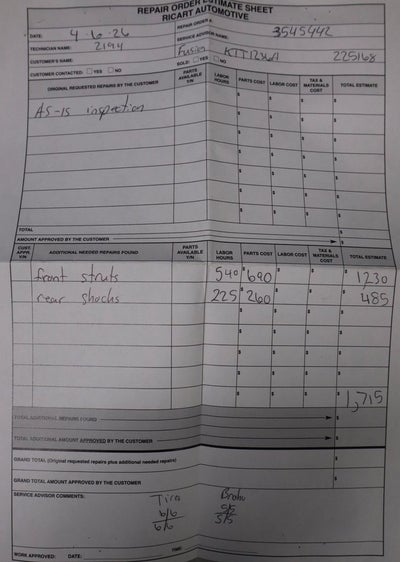 REPAIR ORDER ESTIMATE SHEET
RICART AUTOMOTIVE
DATE: 4-6-26 REPAIR ORDER #: 3545442
TECHNICIAN NAME: 2194 SERVICE ADVISOR NAME:
CUSTOMER'S NAME: Fusion KTT1236A 225168
CUSTOMER CONTACTED: YES NO SOLD: YES NO
ORIGINAL REQUESTED REPAIRS BY THE CUSTOMER PARTS AVAILABLE Y/N LABOR HOURS PARTS COST LABOR COST TAX & MATERIALS COST TOTAL ESTIMATE
AS-IS inspection
TOTAL
AMOUNT APPROVED BY THE CUSTOMER
CUST. APPR. Y/N ADDITIONAL NEEDED REPAIRS FOUND PARTS AVAILABLE Y/N LABOR HOURS PARTS COST LABOR COST TAX & MATERIALS COST TOTAL ESTIMATE
front struts 540 $690 $1230
rear shocks 225 $260 $485
$1,715
TOTAL ADDITIONAL REPAIRS FOUND $
TOTAL ADDITIONAL AMOUNT APPROVED BY THE CUSTOMER $
GRAND TOTAL (Original requested repairs plus additional needed repairs) $
GRAND TOTAL AMOUNT APPROVED BY THE CUSTOMER $
SERVICE ADVISOR COMMENTS:
Tire
6/6 5/5
6/6 5/5
WORK APPROVED: DATE: TIME: